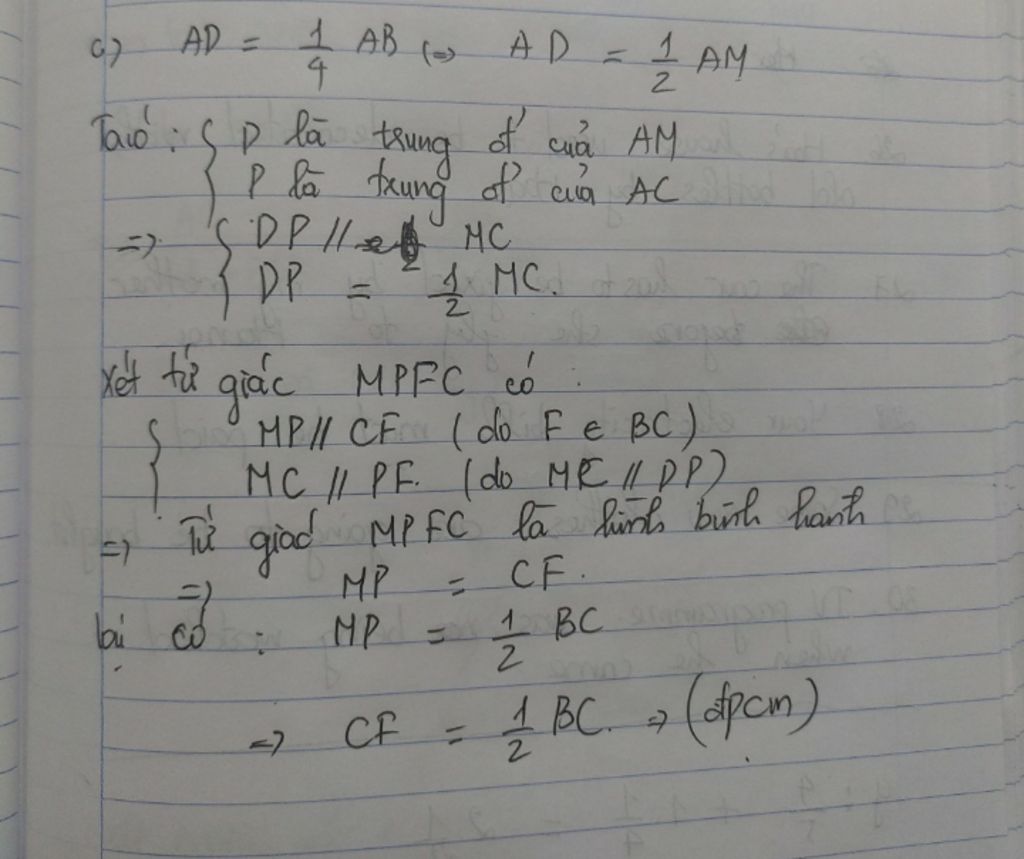 c) AD = 1/4 AB (=) AD = 1/2 AM
Ta có : { D là trung đ' của AM
P là trung đ' của AC
=> { DP // MC
DP = 1/2 MC.
Xét tứ giác MPFC có :
{ MP // CF ( do F ∈ BC )
MC // PF. ( do MC // DP )
=> Tứ giác MPFC là hình bình hành
=> MP = CF.
lại có : MP = 1/2 BC
=> CF = 1/2 BC. => (đpcm)